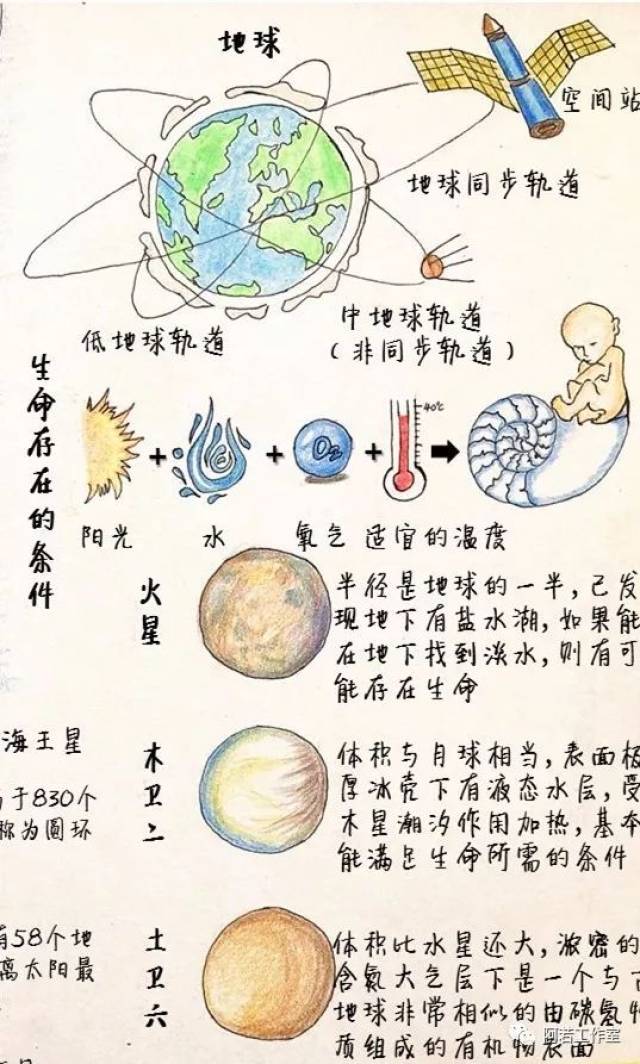 地球
空间站
地球同步轨道
中地球轨道
(非同步轨道)
低地球轨道
生命存在的条件
40℃
O₂
+
+
+
阳光
水
氧气
适宜的温度
火星
半径是地球的一半,已发
现地下有盐水湖,如果能
在地下找到淡水,则有可
能存在生命
海王星
于830个
称为圆环
木卫二
体积与月球相当,表面极
厚冰壳下有液态水层,受
木星潮汐作用加热,基本
能满足生命所需的条件
有58个地
离太阳最
土卫六
体积比水星还大,浓密的
含氮大气层下是一个与
地球非常相似的由碳氢物
质组成的有机物表面
阿若工作室